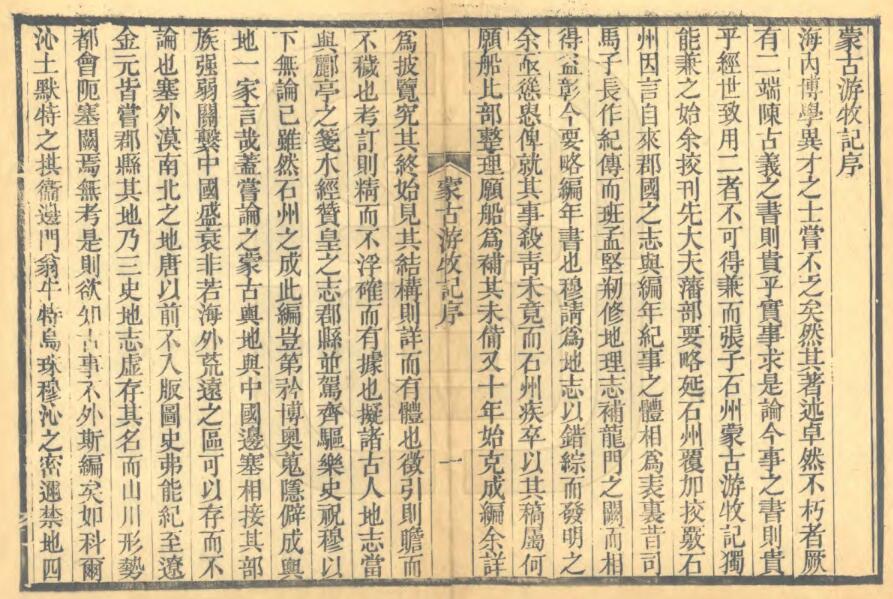 蒙古游牧記序
海內博學異才之士嘗不乏矣然其著述卓然不朽者厥
有二端陳古義之書則貴乎實事求是論今事之書則貴
乎經世致用二者不可得兼而張子石州蒙古游牧記獨
能兼之始余挍刊先大夫藩部要略延石州覆加挍覈石
州因言自來郡國之志與編年紀事之體相爲表裏昔司
馬子長作紀傳而班孟堅剏修地理志補龍門之闕而相
得益彰今要略編年書也穆請爲地志以錯綜而發明之
余亟慫恿俾就其事殺青未竟而石州疾卒以其稿屬何
願船比部整理願船爲補其未備又十年始克成編余詳
蒙古游牧記序
一
爲披覽究其終始見其結構則詳而有體也徵引則贍而
不穢也考訂則精而不浮確而有據也擬諸古人地志當
與酈亭之箋水經贊皇之志郡縣並駕齊驅樂史祝穆以
下無論已雖然石州之成此編豈第矜博奧蒐隱僻成輿
地一家言哉蓋嘗論之蒙古輿地與中國邊塞相接其部
族强弱關繫中國盛衰非若海外荒遠之區可以存而不
論也塞外漠南北之地唐以前不入版圖史弗能紀至遼
金元皆嘗郡縣其地乃三史地志虛存其名而山川形勢
都會阨塞闕焉無考是則欲知古事不外斯編矣如科爾
沁土默特之拱衞邊門翁牛特烏珠穆沁之密邇禁地四